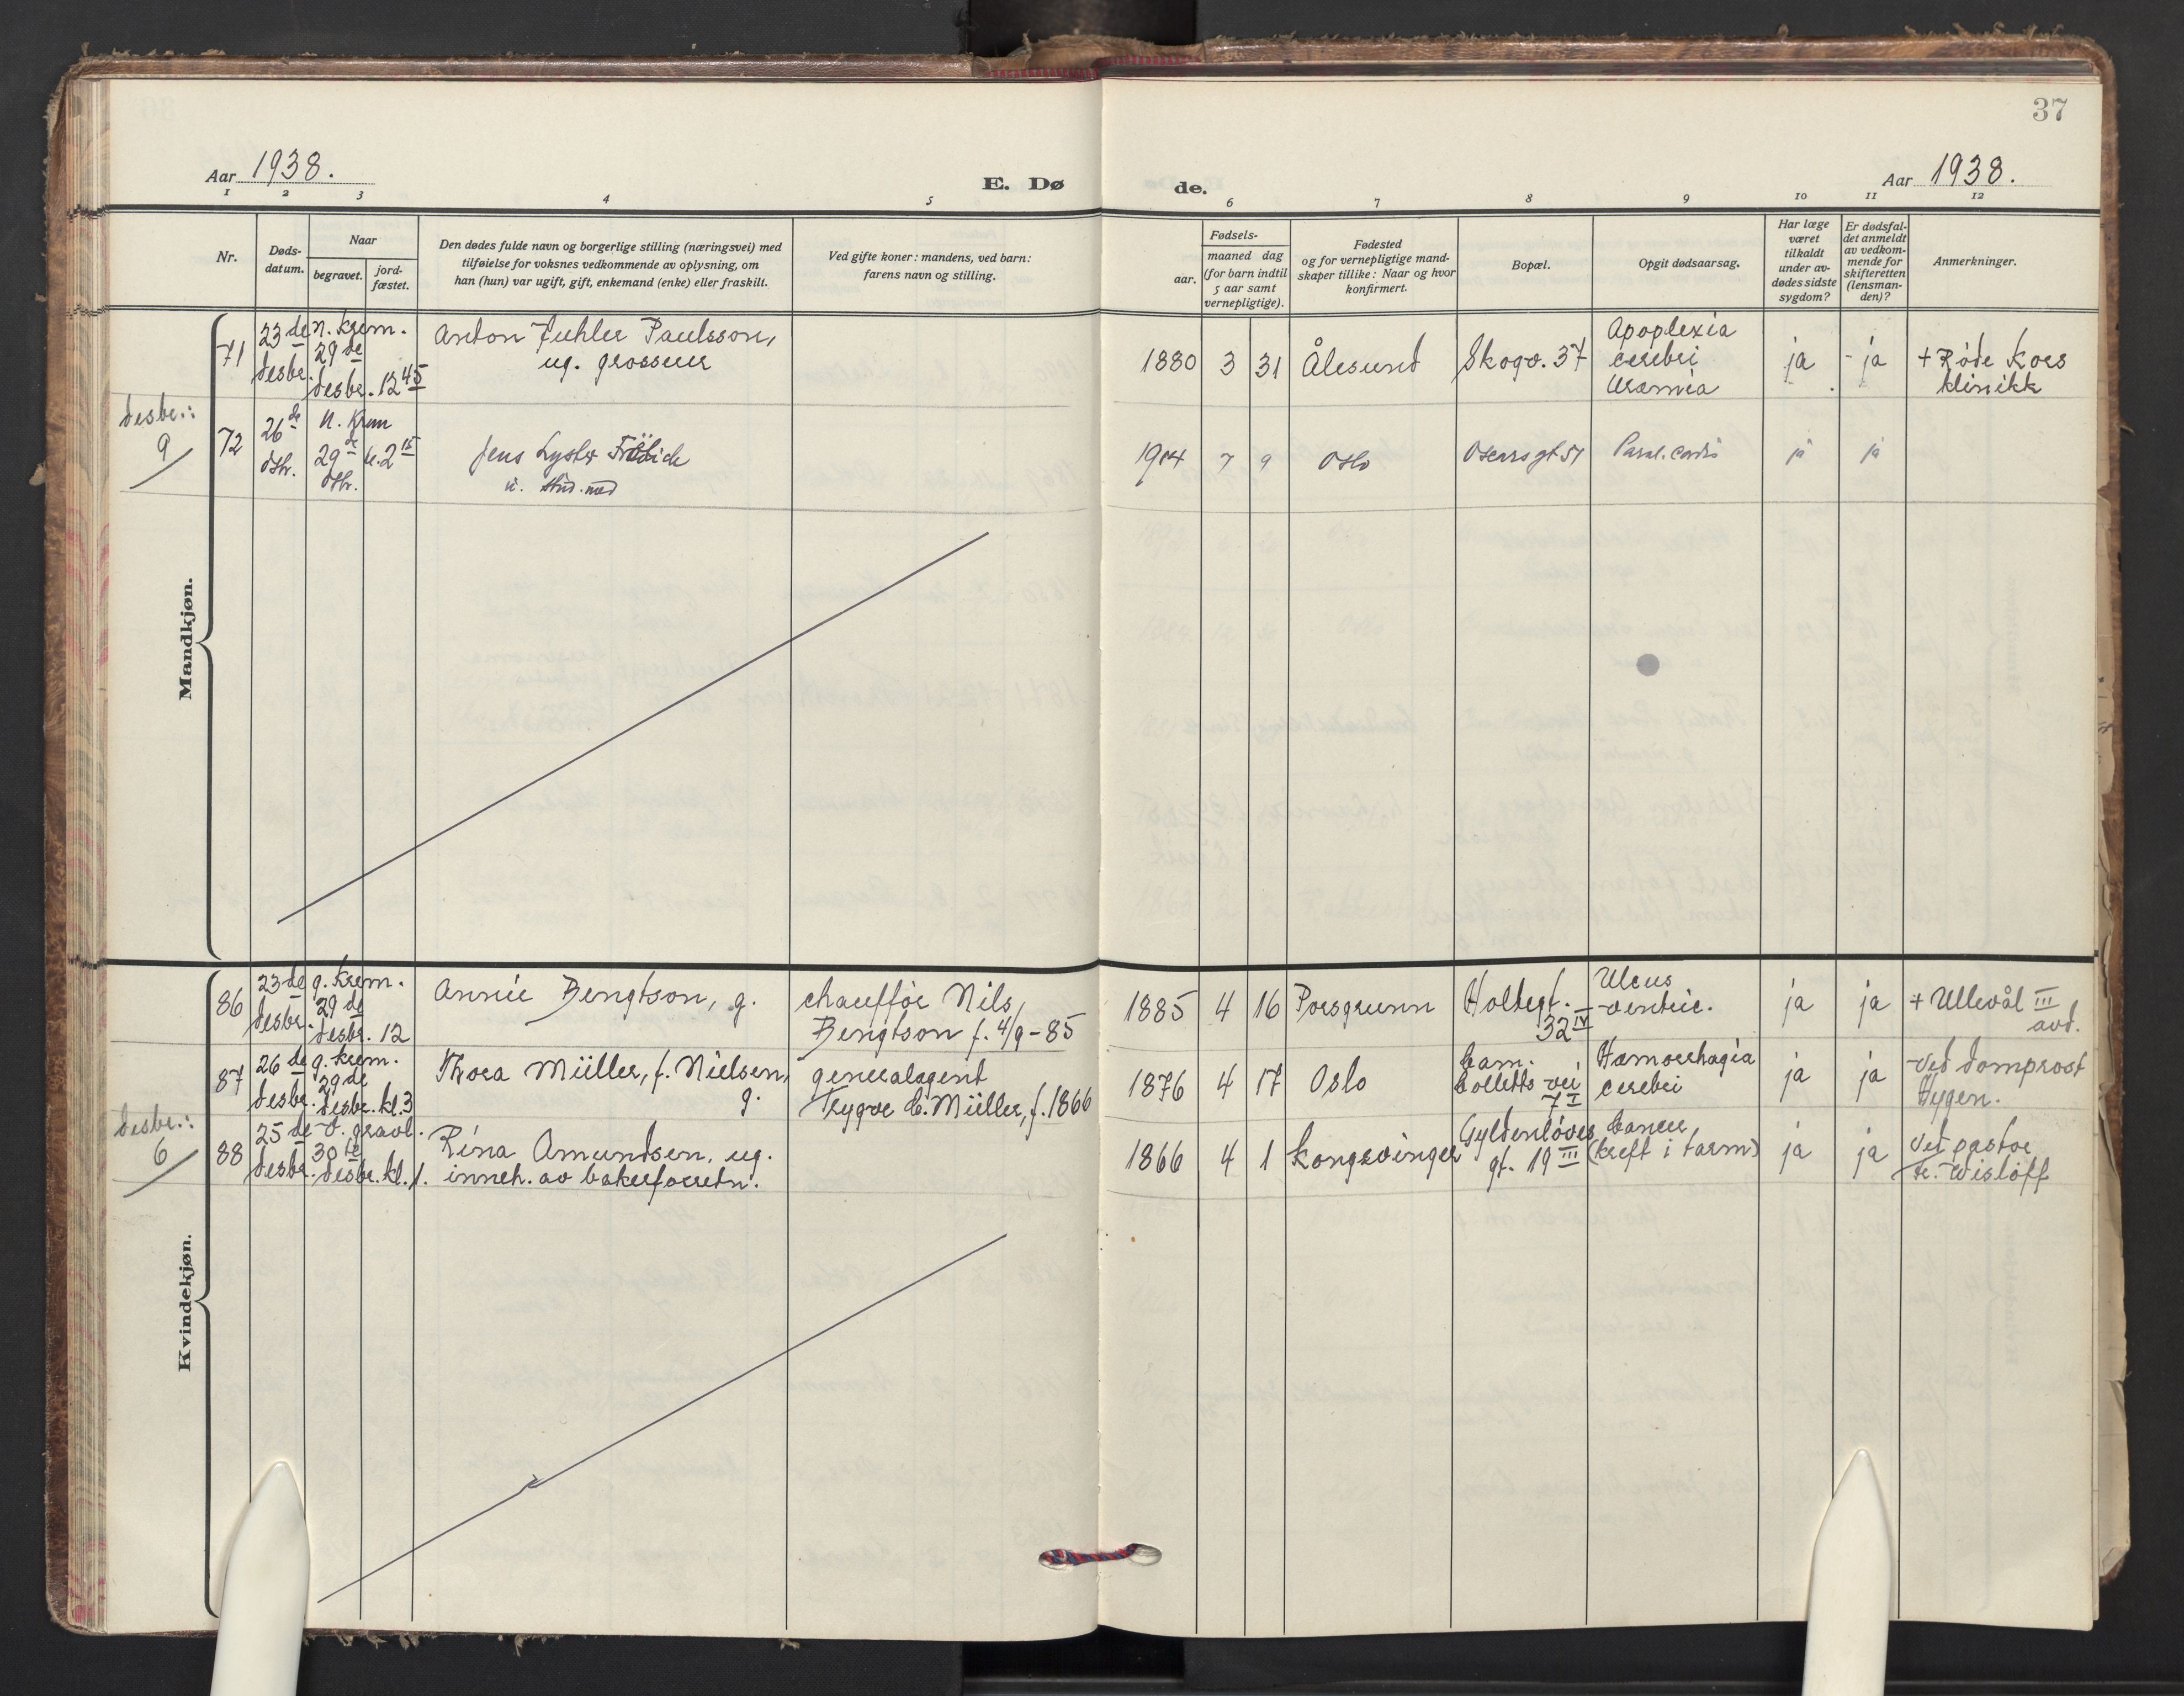 37
Aar 1938.
E. Dø
de.
Aar 1938.
1 2 3 4 5 6 7 8 9 10 11 12
Nr.
Døds-
datum.
Naar
begravet.
jord-
fæstet.
Den dødes fulde navn og borgerlige stilling (næringsvei) med
tilføielse for voksnes vedkommende av oplysning, om
han (hun) var ugift, gift, enkemand (enke) eller fraskilt.
Ved gifte koner: mandens, ved barn:
farens navn og stilling.
Fødsels-
aar.
maaned dag
(for barn indtil
5 aar samt
vernepligtige).
Fødested
og for vernepligtige mand-
skaper tillike: Naar og hvor
konfirmert.
Bopæl.
Opgit dødsaarsag.
Har læge
været
tilkaldt
under av-
dødes sidste
sygdom?
Er dødsfal-
det anmeldt
av vedkom-
mende for
skifteretten
(lensman-
den)?
Anmerkninger.
Mandkjøn.
71
23 de
desbr.
n. krem.
29 de
desbr. 12 45
Anton Juhler Paulsson,
ug. grosserer
1880 3 31
Ålesund
Skogv. 37
Apoplexia
cerebri
Uræmia
ja
- ja
+ Røde Kors
klinikk
desbr.:
9
72
26 de
dsbr.
N. Krem
29 de
dsbr.
kl. 2 15
Jens Lyster Frölich
u. stud. med
1914 7 9
Oslo
Oscarsgt 51
Paral. cordis
ja
ja
Kvindekjøn.
86
23 de
desbr.
g. krem.
29 de
desbr. 12
Annie Bengtson, g.
chauffør Nils
Bengtson f. 4/9-85
1885 4 16
Porsgrunn
Holtegt.
32 IV
Ulcus
ventric.
ja
ja
+ Ullevål III
avd.
87
26 de
desbr.
g. krem.
29 de
desbr. kl. 3
Thora Müller, f. Nielsen,
g.
generalagent
Trygve C. Müller, f. 1866
1876 4 17
Oslo
Cam.
Colletts vei
7 I
Hæmorrhagia
cerebri
ja
ja
Ved domprost
Hygen.
desbr.:
6
88
25 de
desbr.
v. gravl.
30 te
desbr. kl. 1.
Rina Amundsen, ug.
inneh. av bakerforretn.
1866 4 1
Kongsvinger
Gyldenløves
gt. 19 III
Cancer
(kreft i tarm)
ja
ja
Ved pastor
Fr. Wisløff